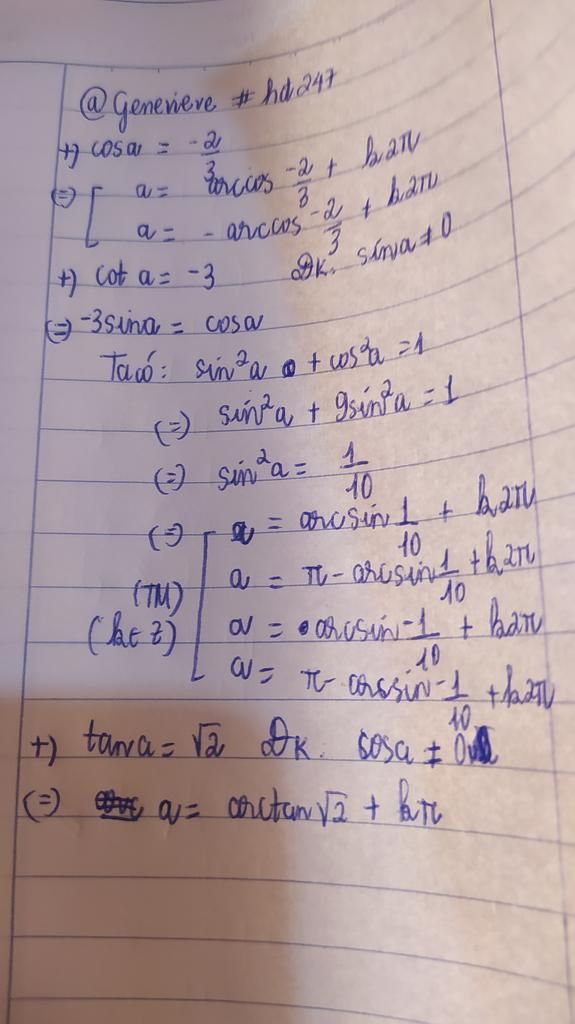 @Genevieve #hd247
+) cosa = -2/3
(=) [ a = arccos -2/3 + k2π
a = - arccos -2/3 + k2π
+) cot a = -3 Đk: sina ≠ 0
(=) -3sina = cosa
Ta có: sin²a + cos²a = 1
(=) sin²a + 9sin²a = 1
(=) sin²a = 1/10
(=) [ a = arcsin 1/10 + k2π
a = π - arcsin 1/10 + k2π
(TM)
(k∈Z) a = arcsin -1/10 + k2π
a = π - arcsin -1/10 + k2π
+) tana = √2 Đk: cosa ≠ 0
(=) a = arctan√2 + kπ